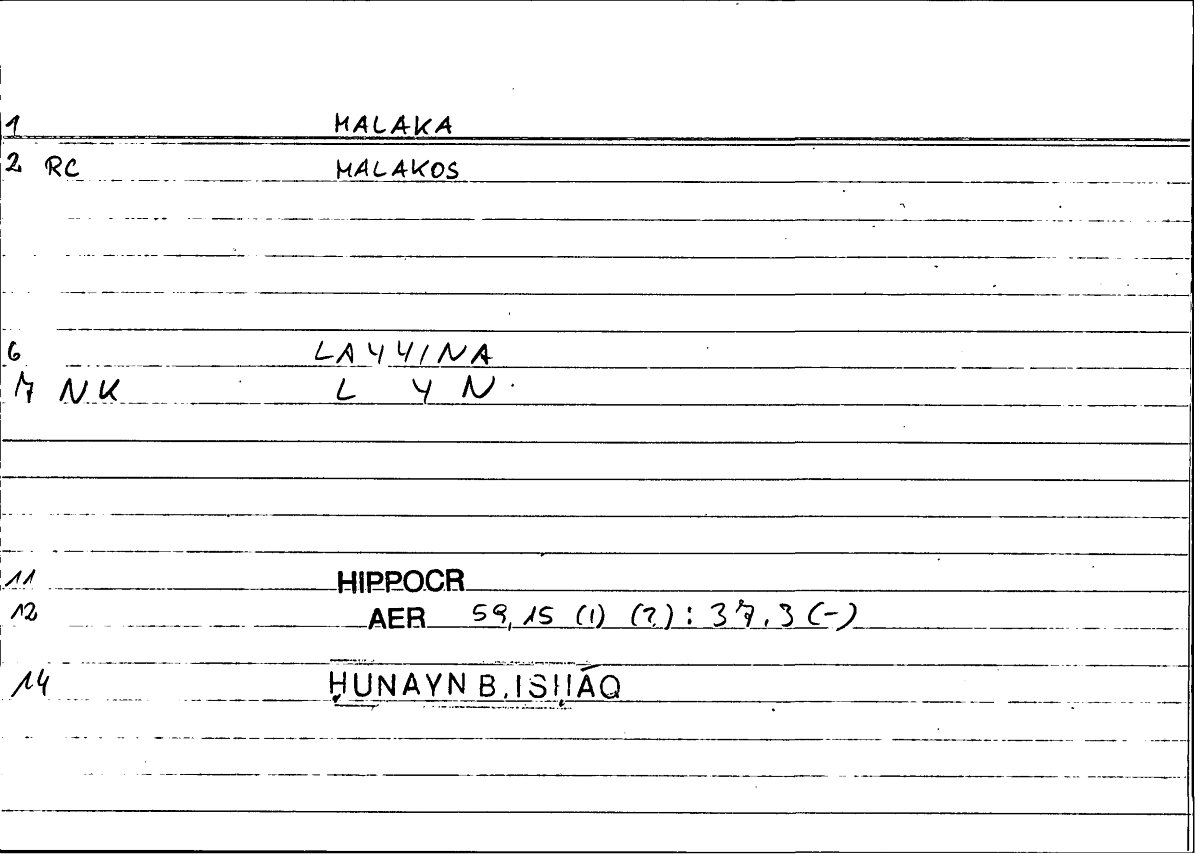 1 MALAKA
2 RC MALAKOS
6 LAYYINA
7 NK L Y N
11 HIPPOCR
12 AER 59,15 (1) (?): 37,3 (-)
14 ḤUNAYN B. ISḤĀQ